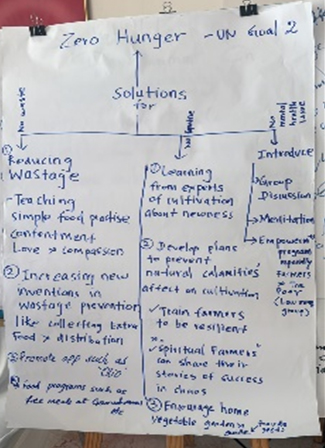 Zero Hunger - UN Goal 2
Solutions
for
No waste
No
mental
health
issue
① Reducing
Wastage
- Teaching
simple food practise
contentment
Love > compassion
② Increasing new
inventions in
wastage prevention
like collecting Extra
Food > distribution
Promote app such as
Food programs such as
free meals at
etc
① Learning
from experts
of cultivation
about newness
② Develop plans
to prevent
natural calamities'
affect on cultivation
✓ Train farmers
to be resilient
✓ Spiritual Farmers
can share their
stories of success
in chaos
③ Encourage home
vegetable gardening
Introduce
Group
Discussion
→ Meditation
→ Empowerment
program
especially
farmers